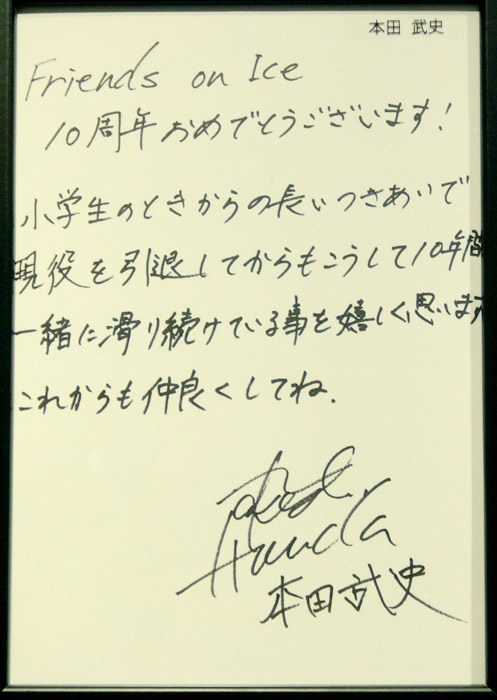 本田 武史
Friends on Ice
10周年おめでとうございます!
小学生のときからの長いつきあいで
現役を引退してからもこうして10年間
一緒に滑り続けている事を嬉しく思います
これからも仲良くしてね.
Takeshi
Honda
本田武史